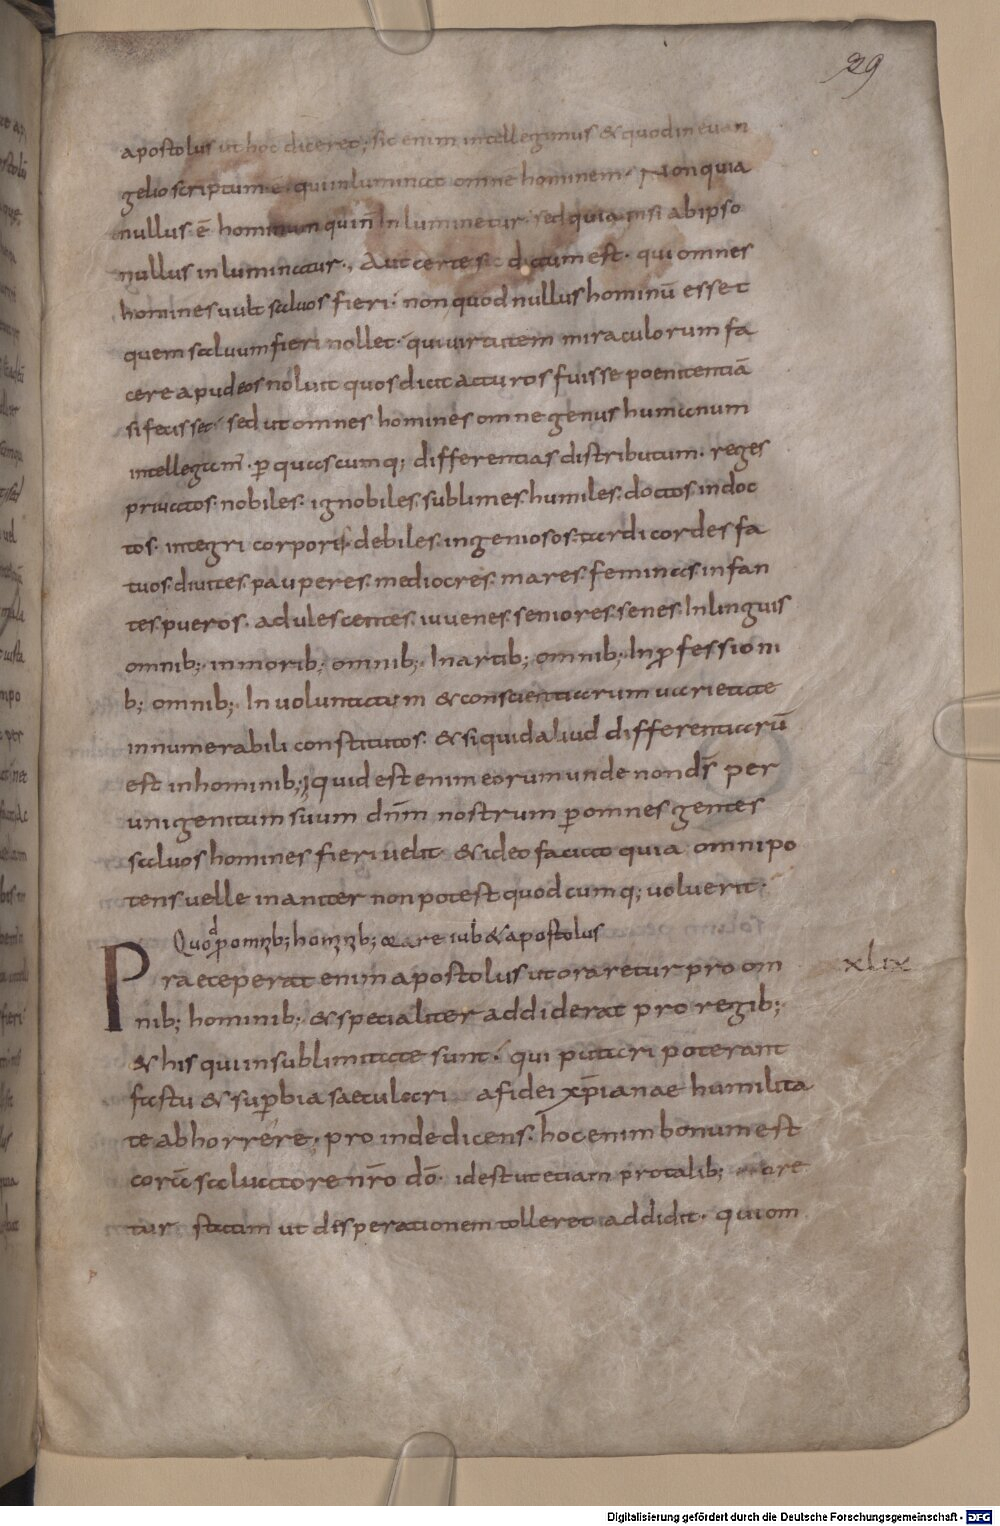 39
apostolus ut hoc diceret; sic enim intellegimus & quod in euan
gelio scriptum ē· qui inluminat omne hominem· Non quia
nullus ē hominum qui n̄ inluminetur· sed quia nisi ab ipso
nullus inluminatur·, Aut certe sic dictum est· qui omnes
homines uult saluos fieri· non quod nullus hominū esset
quem saluum fieri nollet· qui uirtutem miraculorum fa
cere apud eos noluit quos dicit acturos fuisse poenitentiā
si fecisset· sed ut omnes homines omne genus humanum
intellegam̄· ꝑ quascumq; differentias distributum· reges
priuatos· nobiles· ignobiles· sublimes· humiles· doctos· indoc
tos· integri corporis· debiles· ingeniosos· tardi cordes fa
tuos· diuites· pauperes· mediocres· mares· feminas· infan
tes· pueros· adulescentes· iuuenes· seniores· senes· In linguis
omnib;· in morib; omnib;· In artib; omnib;· In ꝓfessioni
b; omnib;· In uoluntatum & conscientiarum uarietate
innumerabili constitutos· & si quid aliud differentiarū
est in hominib; quid est enim eorum unde non dr̄ per
unigenitum suum dn̄m nostrum ꝑ omnes gentes
saluos homines fieri uelit· & ideo faciat quia omnipo
tens uelle inaniter non potest quodcumq; uoluerit·
& apostolus
Praeceperat enim apostolus ut oraretur pro om
xlix
nib; hominib;· & specialiter addiderat pro regib;
& his qui in sublimitate sunt· qui putari poterant
fastu & suꝑbia saeculari a fidei xp̄ianae humilita
te abhorrere· proinde dicens· hoc enim bonum est
corā saluatore nr̄o dō· id est ut etiam pro talib; ore
tur statim ut disperationem tolleret addidit· qui om
Digitalisierung gefördert durch die Deutsche Forschungsgemeinschaft - DFG